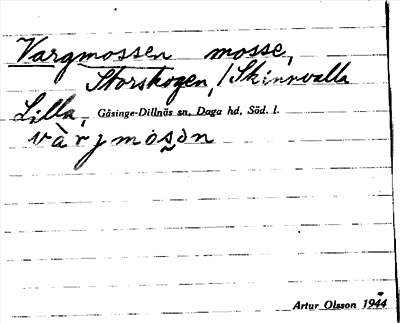 Vargmossen mosse,
Storskogen, / Skinnvalla
Lilla, Gåsinge-Dillnäs sn, Daga hd, Söd. l.
vàrjmosən
Artur Olsson 1944